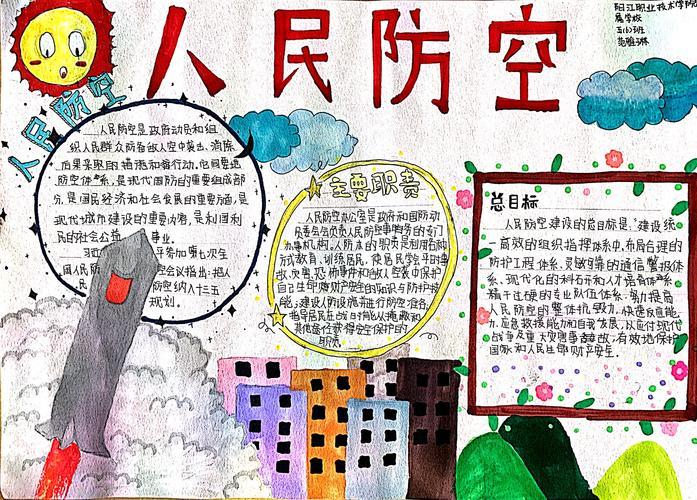 人民防空
阳江职业技术学院
属学校
人民防空
人民防空是政府动员和组
织人民群众防备敌人空中袭击、消除
后果采取的措施和行动,它同要地
防空体系,是现代国防的重要组成部
分,是国民经济和社会发展的重要方面,是
现代城市建设的重要内容,是利国利
民的社会公益事业。
平参加第七次全
空会议指出:把人
防空纳入十三五
规划。
主要职责
人民防空办公室是政府和国防动
员委员会负责人民防空
办事机构。人防办的职责是利用各种
方式教育,训练居民,使居民学会平时事
故,灾害,恐怖事件和敌人空袭中保护
自己生命财产安全的知识与防护技
能;建设人防设施并进行防空准备,
指导居民在战时能从掩蔽和
其他途径获得安全保护的
职责。
总目标
人民防空建设的总目标是,建设统
一高效的组织指挥体系中,布局合理的
防护工程体系,灵敏可靠的通信警报体
系,现代化的科研和人才培养体系
精干过硬的专业队伍体系,努力提高
人民防空的整体抗毁力,快速反应能
力,应急救援能力和自我发展,以应付现代
战争及重大灾害事故,有效地保护
国家和人民生命财产安全。